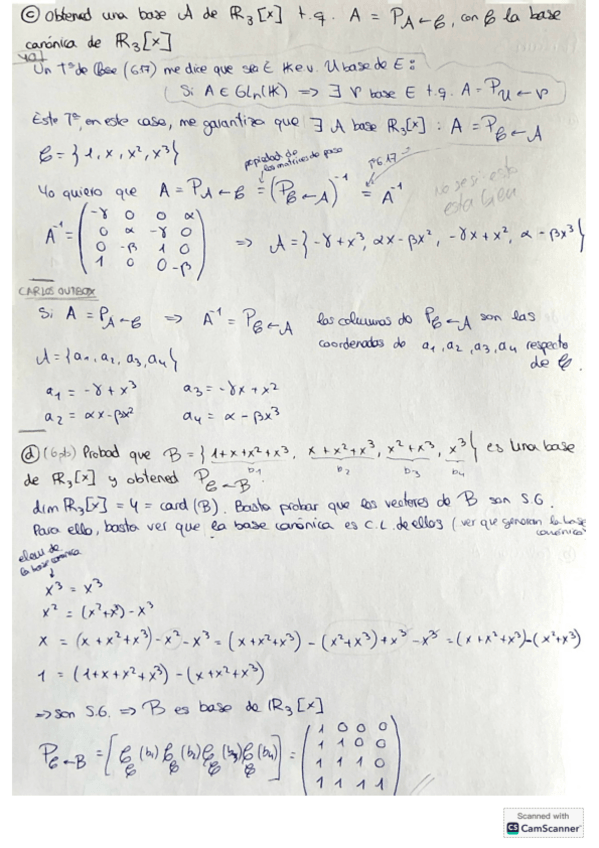 ⓒ Obtened una base A de ℝ₃[x] t.q. A = P_{A←C}, con C la base
canónica de ℝ₃[x]
Un Tª de clase (6.17) me dice que sea E ℋ e.v. U base de E:
Si A ∈ GLn(ℋ) ⟹ ∃ V base E t.q. A = P_{U←V}
Este Tª, en este caso, me garantiza que ∃ A base ℝ₃[x] : A = P_{C←A}
C = {1, x, x², x³}
propiedad de
las matrices de paso
T6.17
Yo quiero que A = P_{A←C} = (P_{C←A})⁻¹ = A⁻¹
no se si esto
esta bien
A⁻¹ = ( -γ 0 0 α
0 α -γ 0
0 -β 1 0
1 0 0 -β ) ⟹ A = {-γ+x³, αx-βx², -γx+x², α-βx³}
CARLOS OUTBOX
Si A = P_{A←C} ⟹ A⁻¹ = P_{C←A} las columnas de P_{C←A} son las
coordenadas de a₁, a₂, a₃, a₄ respecto
de C.
A = {a₁, a₂, a₃, a₄}
a₁ = -γ + x³ a₃ = -γx + x²
a₂ = αx - βx² a₄ = α - βx³
ⓓ (6pb) Probad que B = {1+x+x²+x³, x+x²+x³, x²+x³, x³} es una base
b₁ b₂ b₃ b₄
de ℝ₃[x] y obtened P_{C←B}.
dim ℝ₃[x] = 4 = card (B). Basta probar que los vectores de B son S.G.
Para ello, basta ver que la base canónica es C.L. de ellos (ver que generan la base
canónica)
elem de
la base canónica
x³ = x³
x² = (x²+x³) - x³
x = (x + x²+x³) - x² - x³ = (x+x²+x³) - (x²+x³) + x³ - x³ = (x+x²+x³) - (x²+x³)
1 = (1+x+x²+x³) - (x+x²+x³)
⟹ son S.G. ⟹ B es base de ℝ₃[x]
P_{C←B} = [C_C(b₁) C_C(b₂) C_C(b₃) C_C(b₄)] = ( 1 0 0 0
1 1 0 0
1 1 1 0
1 1 1 1 ) //
Scanned with
CS CamScanner